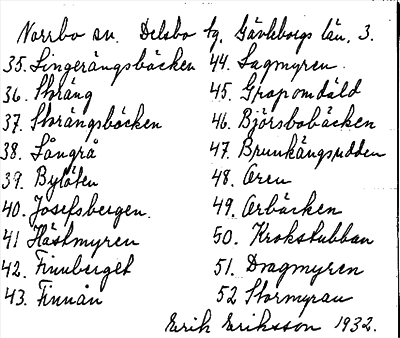 Norrbo sn. Delsbo tg. Gävleborgs län. 3.
35. Lingerängsbäcken
36. Storäng
37. Storängsbäcken
38. Långrå
39. Bylöten
40. Josefsbergen.
41 Hästmyren
42. Finnberget
43. Finnån
44. Lagmyren.
45. Grapomdåld
46. Björsbobäcken
47. Brunkängsudden
48. Aren
49. Arbäcken
50. Krokstubban
51. Dragmyren
52 Stormyran
Erik Eriksson 1932.